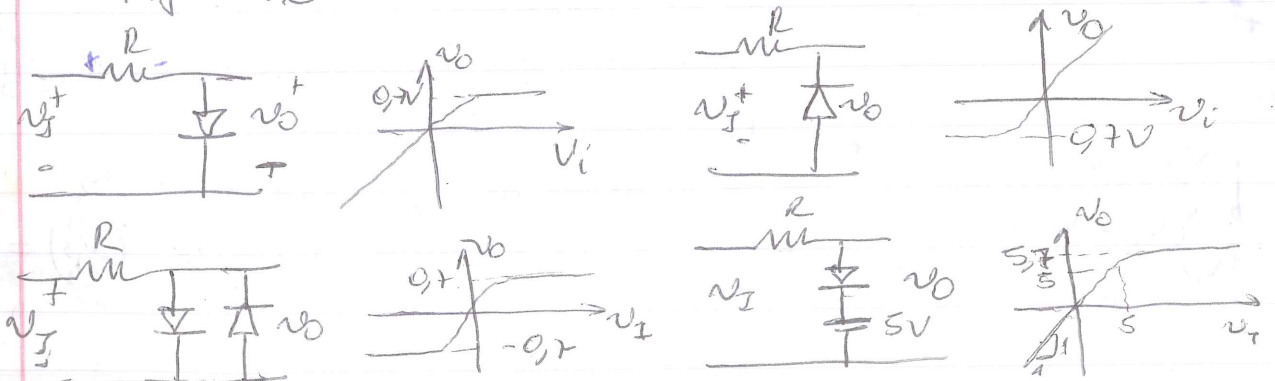 R
+ -
v_I + -
v_O + -
v_O
0,7V
V_i
R
v_I + -
v_O
v_O
v_i
0,7V
R
v_I + -
v_O
v_O
0,7
v_I
-0,7
R
v_I
v_O
5V
v_O
5,7
5
5
v_I
1
1